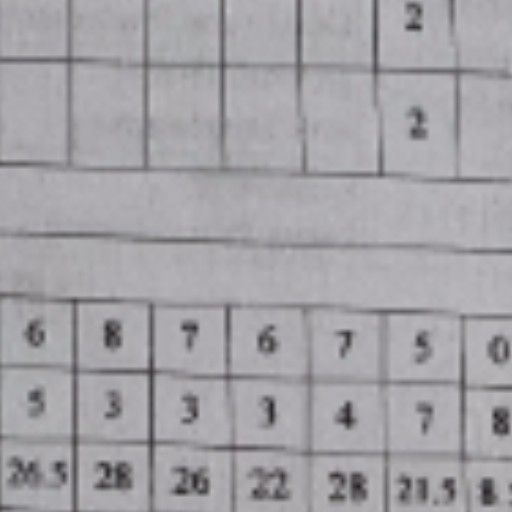 2
2
6 8 7 6 7 5 0
5 3 3 3 4 7 8
26.5 28 26 22 28 21.5